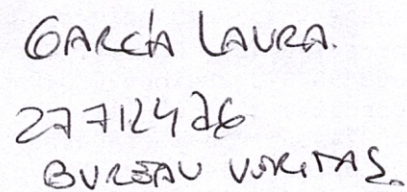 GARCÍA LAURA.
27712426
BUREAU VERITAS.